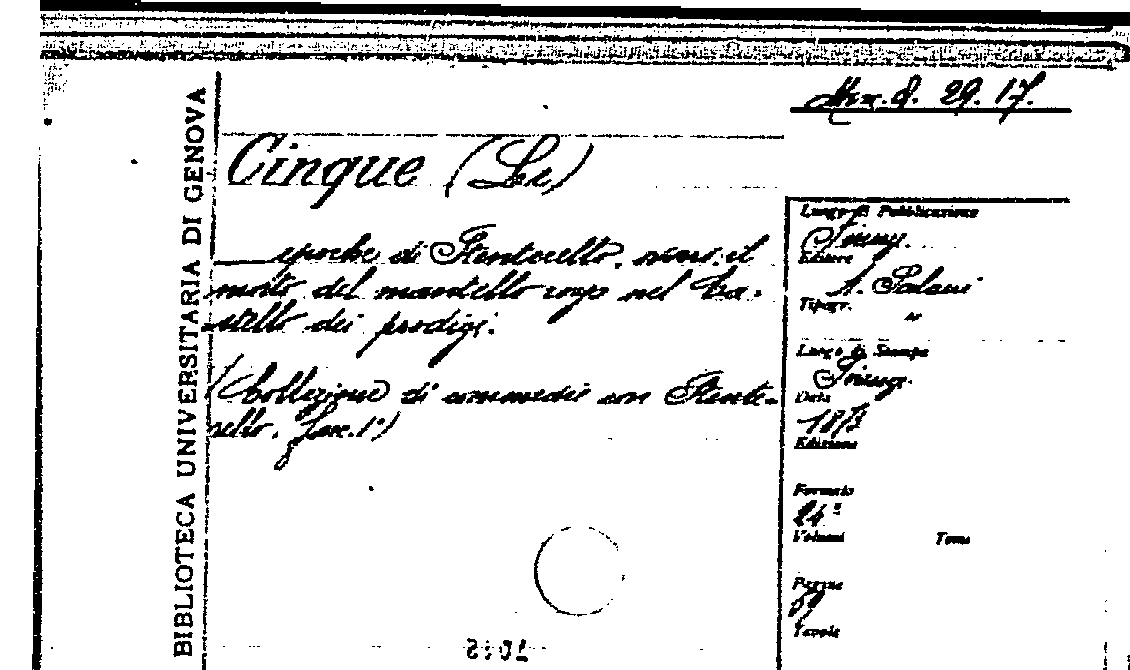 29. 17.
BIBLIOTECA UNIVERSITARIA DI GENOVA
Cinque (Le)
epoche di Stenterello, ossia il
morto dal mantello rosso nel Ca-
stello dei prodigi.
(Collezione di commedie con Stente-
rello. fasc. 1°)
Luogo di Pubblicazione
Firenze.
Editore
A. Salani
Tipogr.
"
Luogo di Stampa
Firenze.
Data
1873
Edizione
Formato
24°
Volumi Tomi
Pagine
Tavole